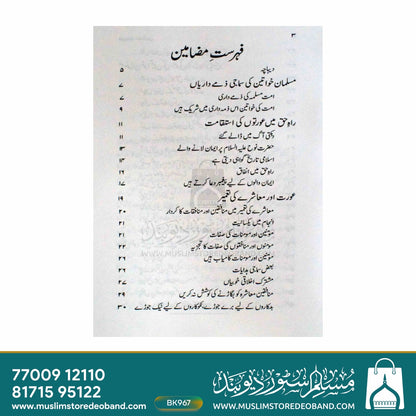 ۳
فہرستِ مضامین
دیباچہ ۵
مسلمان خواتین کی سماجی ذمے داریاں ۷
امت مسلمہ کی ذمے داری ۷
امت کی خواتین اس ذمہ داری میں شریک ہیں ۹
راہِ حق میں عورتوں کی استقامت ۱۱
دہکتی آگ میں ڈالے گئے ۱۱
حضرت نوح علیہ السلام پر ایمان لانے والے ۱۳
اسلامی تاریخ گواہی دیتی ہے ۱۳
راہِ حق میں انفاق ۱۶
ایمان والوں کے لیے پیغمبر دعا کرتے ہیں ۱۷
عورت اور معاشرے کی تعمیر ۱۹
معاشرے کی تعمیر میں منافقین اور منافقات کا کردار ۲۰
انجام میں یکسانیت ۲۱
مومنین اور مومنات کی صفات ۲۱
مومنوں اور منافقوں کی صفات کا تجزیہ ۲۲
مومنین اور مومنات کامیاب ہیں ۲۲
بعض سماجی ہدایات ۲۲
مشترک اخلاقی خوبیاں ۲۷
منافقین معاشرہ کو بگاڑنے کی کوشش نہ کریں ۲۹
بدکاروں کے لیے برے جوڑے، نکوکاروں کے لیے نیک جوڑے ۳۰
WWW.MUSLIMSTOREDEOBAND.COM
77009 12110
81715 95122
BK967
مسلم اسٹور دیوبند
www.muslimstoredeoband.com